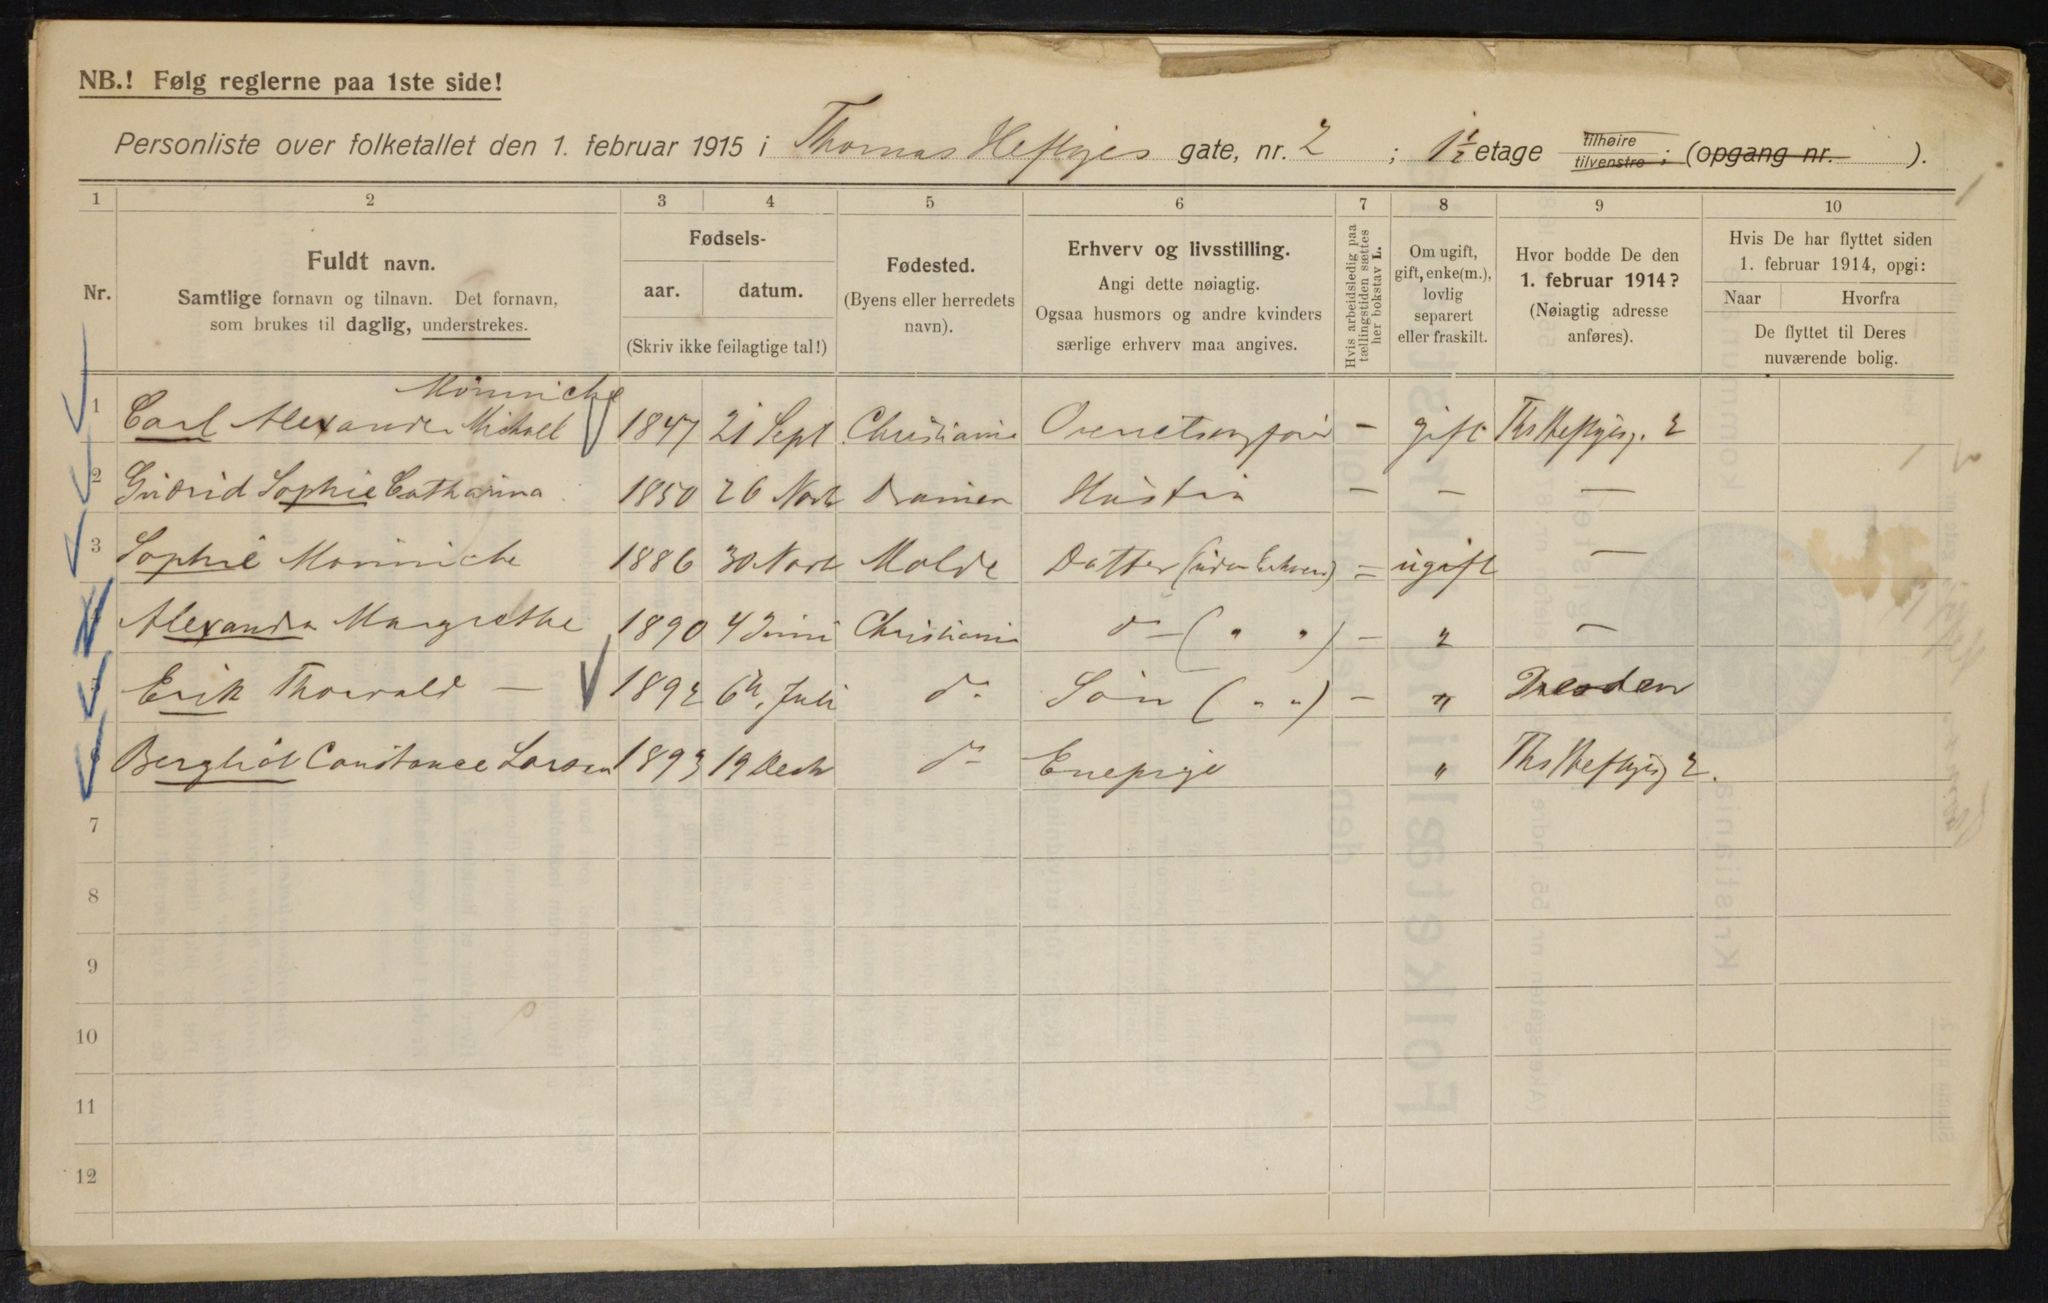 NB.! Følg reglerne paa 1ste side!
Personliste over folketallet den 1. februar 1915 i Thomas Heftyes gate, nr. 2 ; 1 1/2 etage tilhøire tilvenstre ; (opgang nr. ).
1 2 3 4 5 6 7 8 9 10
Nr.
Fuldt navn.
Samtlige fornavn og tilnavn. Det fornavn,
som brukes til daglig, understrekes.
Fødsels-
aar. datum.
(Skriv ikke feilagtige tal!)
Fødested.
(Byens eller herredets
navn).
Erhverv og livsstilling.
Angi dette nøiagtig.
Ogsaa husmors og andre kvinders
særlige erhverv maa angives.
Hvis arbeidsledig paa
tællingstiden sættes
her bokstav L.
Om ugift,
gift, enke(m.),
lovlig
separert
eller fraskilt.
Hvor bodde De den
1. februar 1914?
(Nøiagtig adresse
anføres).
Hvis De har flyttet siden
1. februar 1914, opgi:
Naar Hvorfra
De flyttet til Deres
nuværende bolig.
Monniche
1 Carl Alexander Michael 1847 21 Sept Christiania – gift Ths Heftyesg. 2
2 Gudrid Sophie Catharina 1850 26 Novb Dramen Hustru – – –
3 Sophie Monniche 1886 30 Novb Molde Datter (uden Erhverv) = ugift –
Alexandra Margrethe 1890 4 Juni Christiania do – ( " " ) – " –
Erik Thorvald – 1892 6te Juli do Søn ( " " ) – " Dresden
Bergliot Constance Larsen 1893 19 Decb do Enepige " Ths Heftyesg 2.
7
8
9
10
11
12